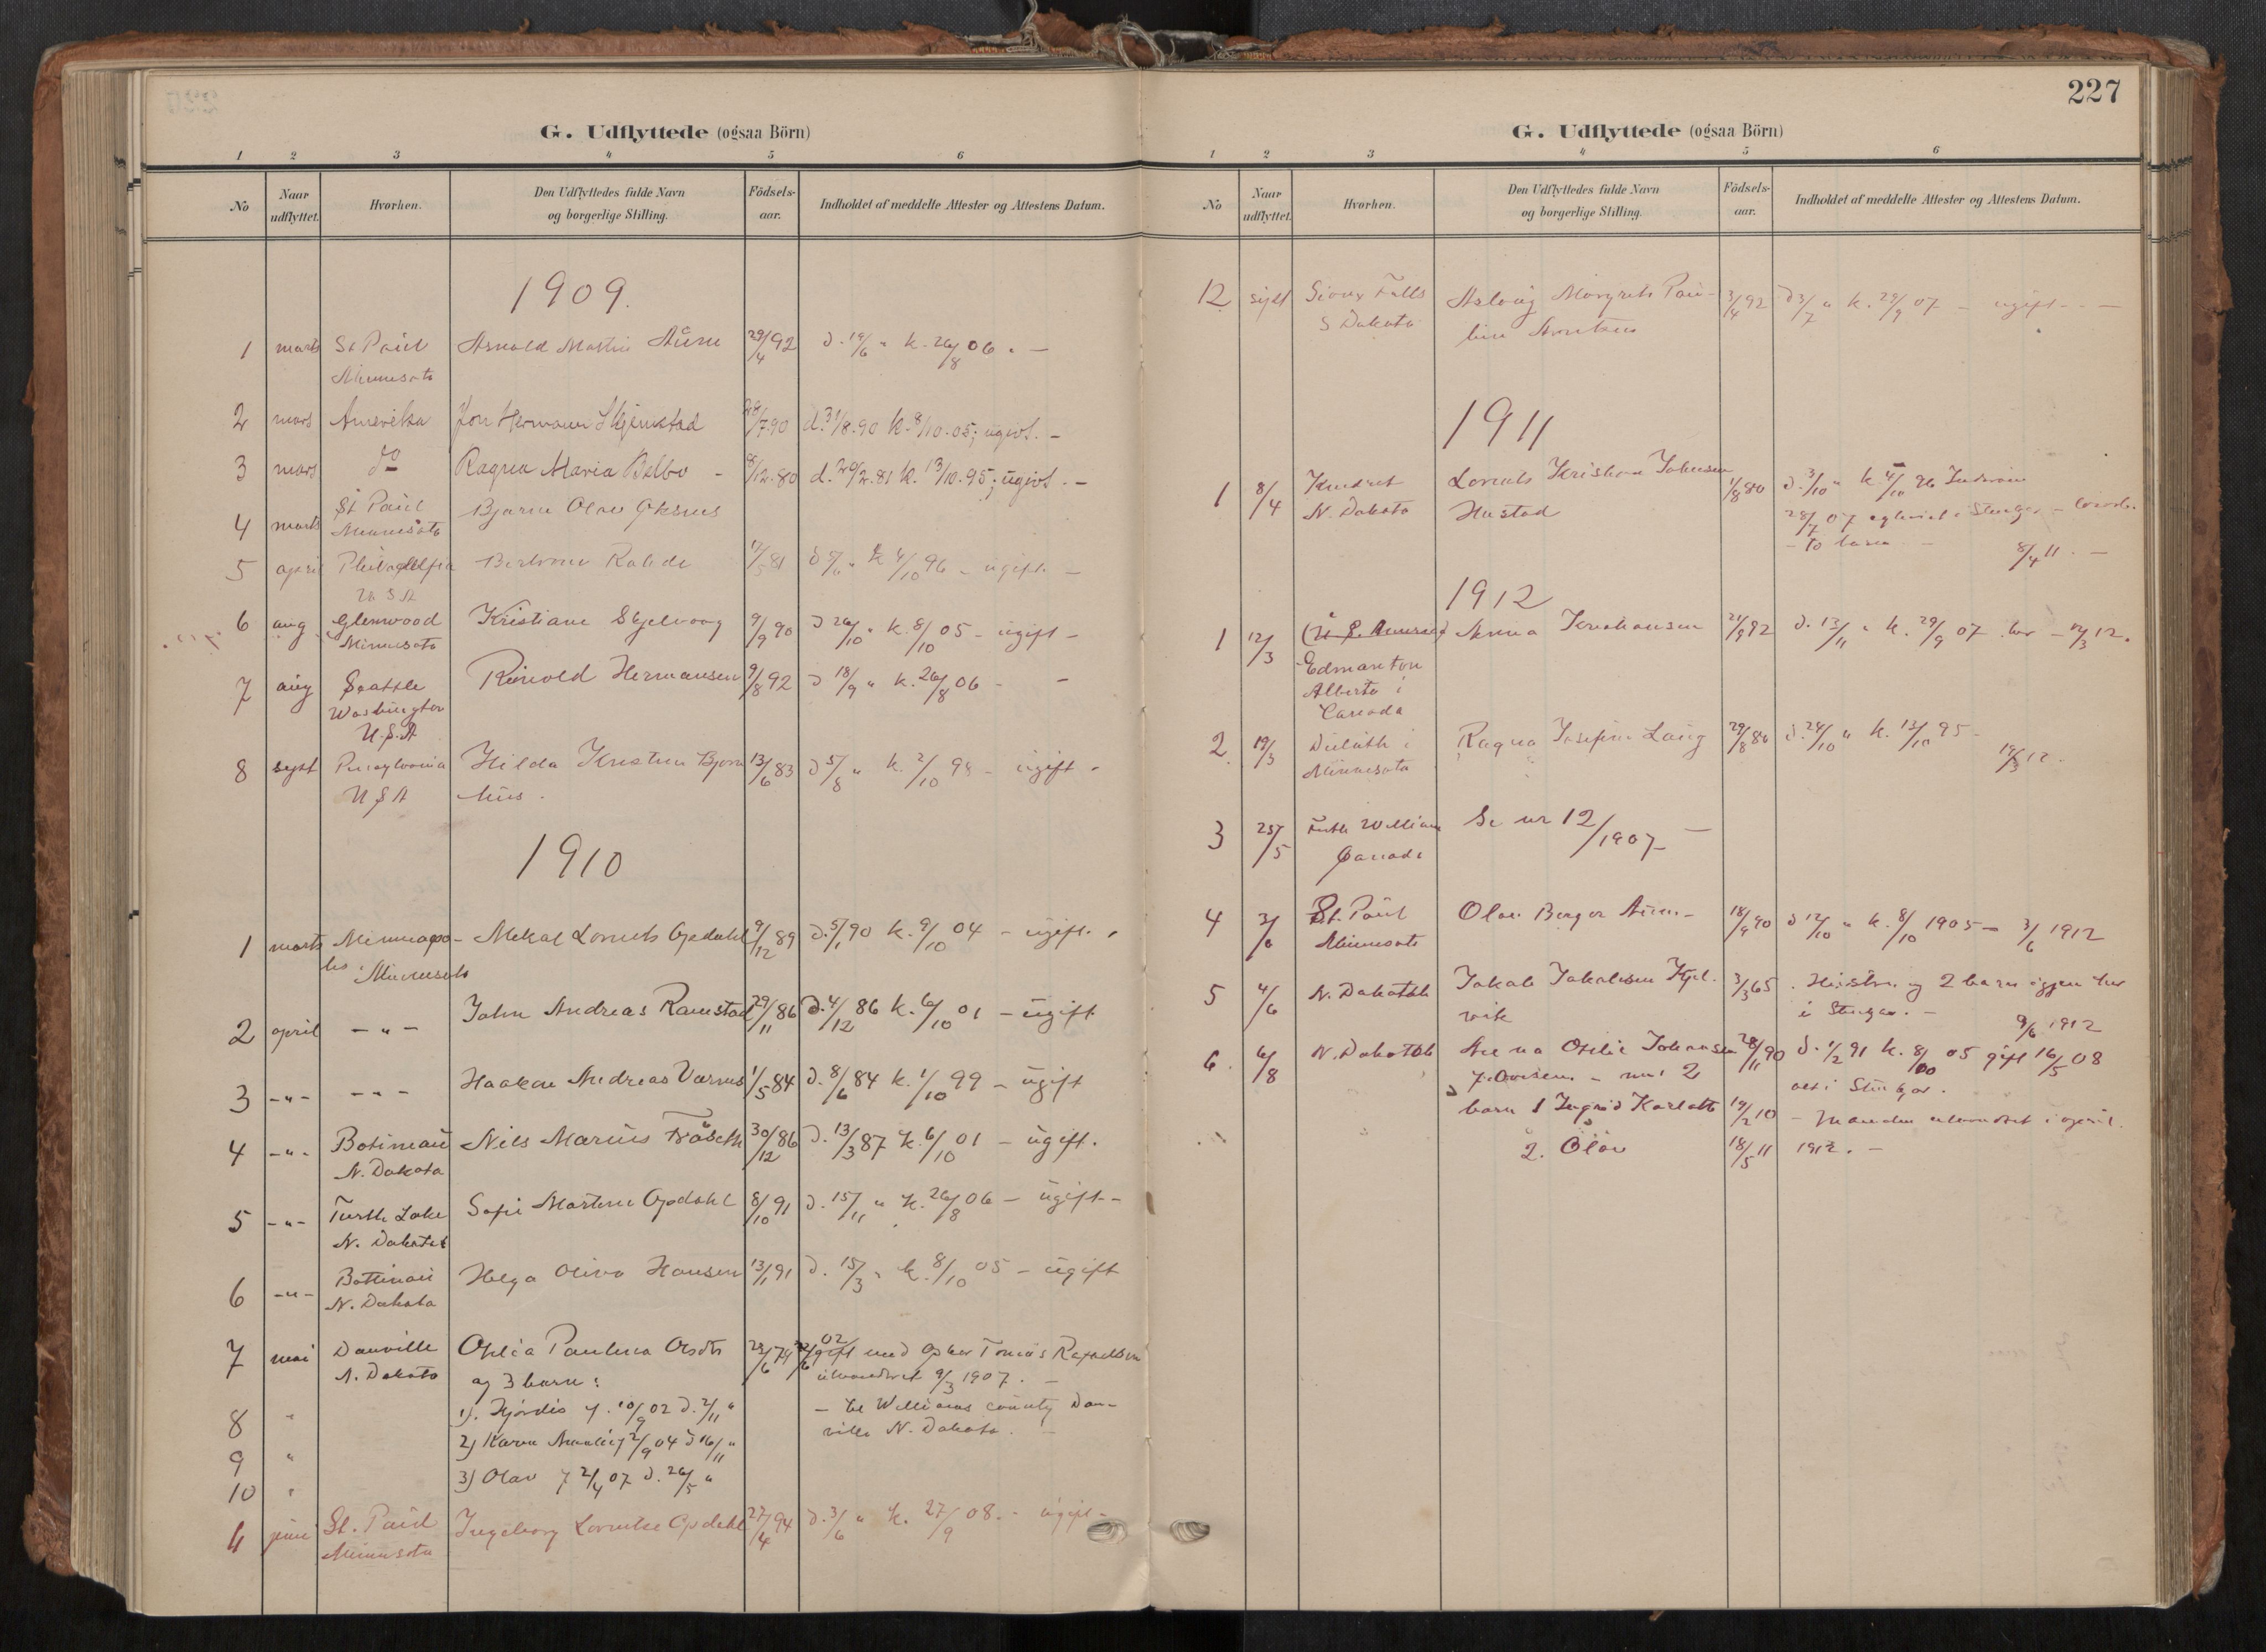 G. Udflyttede (ogsaa Börn)
1 2 3 4 5 6
No
Naar udflyttet.
Hvorhen.
Den Udflyttedes fulde Navn og borgerlige Stilling.
Födsels-aar.
Indholdet af meddelte Attester og Attestens Datum.
1909.
1 marts St Paul Arnold Martin Aune 29/4 92 d. 19/6 " k. 26/8 06 . —
Minnesota
2 mars Amerika Jon Hermann Skjemstad 28/7.90 d. 31/8.90 k. 8/10.05; ugivt. —
3 mars do Ragna Maria Bolbo - 8/12.80 d. 20/2.81 k. 13/10.95; ugivt. —
4 marts St Paul Bjarne Olav
Minnesota
5 april Philadelfia 17/5 81 k 4/10 96 - ugift. —
U S A
6 aug Glenwood Kristiane Skjelvaag 9/9 90 d 26/10 " k. 8/10 05 - ugift -
Minnesota
7 aug Seattle Reinold Hermansen 9/8 92 d 18/9 " k. 26/8 06 - -
Washington
U.S.A
8 sept Pensylvania Hilda Kristine Bjørn 13/6 83 d 5/8 " k. 2/10 98 - ugift -
U S A hus .
1910
1 marts Minneapo- Mekal Lorents Opdahl 9/12 89 d. 5/1 90 k. 9/10 04 - ugift. ,
lis Minnesota
2 april - " - John Andreas Ramstad 29/11 86 d. 4/12 86 k. 6/10 01 - ugift
3 - " - - " - Haakon Andreas Værnes 1/5 84 d. 8/6 84 k. 1/10 99 - ugift
4 - " - Botineau Nils Marius Fråseth 30/12 86 d. 13/3 87 k. 6/10 01 - ugift.
N. Dakota
5 - " - Turtle Lake Sofie Martine Opdahl 8/10 91 d. 15/11 " k. 26/8 06 - ugift -
N. Dakota
6 - " - Bottinau Helga Oliva Hansen 13/1 91 d. 15/3 " k. 8/10 05 - ugift
N. Dakota
7 mai Danville Otelia Paulina Olsdtr 23/6 79 22/6 02 gift med Oskar Tomas Rafaelsen
N. Dakota og 3 barn: utvandret 9/3 1907. —
8 " 1). Hjørdis f. 10/9 02 d. 2/11 " - til Williams county Dan-
9 " 2) Karen 2/9 04 d 16/11 " ville N. Dakota. —
10 " 3) Olav f 2/4 07 d. 26/5 "
11 juni St. Paul Ingeborg Lorentse Opdahl 27/4 94 d. 3/6 " k. 27/9 08. - ugift -
Minnesota
227
G. Udflyttede (ogsaa Börn)
1 2 3 4 5 6
No
Naar udflyttet.
Hvorhen.
Den Udflyttedes fulde Navn og borgerlige Stilling.
Födsels-aar.
Indholdet af meddelte Attester og Attestens Datum.
12 sept Sioux Falls Aslaug Margrete Pau- 3/4 92 d 3/7 " k. 29/9 07 - ugift - -
S Dakota line
1911
1 8/4 Lorents Kristian Johnsen 1/8 80 d. 3/10 " k. 4/10 96
N. Dakota Hustad 28/7 07
- to barn - 8/4 11. —
1912
1 12/3 Anna Jonhansen 21/9 92 d. 13/11 " k. 29/9 07 - 12/3 12.
Edmanton
Alberta i
Canada
2. 19/3 Duluth i Ragna Josefine Laug 29/8 80 d. 24/10 " k. 13/10 95 -
Minnesota 19/3 12.
3 25/5 William Se nr 12/1907 —
Canada
4 3/6 St. Paul Olav Berger Aune - 18/9 90 d 12/10 " k. 8/10 1905 - 3/6 1912
Minnesota
5 4/6 N. Dakotah Jakob Jakobsen Hjel- 3/3 65 . Hustru og 2 barn igjen her
vik i Steinkjer. - 9/6 1912
6. 6/8 N. Dakotah Otelie Johansen 28/11 90 d. 1/2 91 k. 8/10 05 gift 16/5 08
- med 2
barn 1 Ingrid Karlotte 19/2 10 - Manden utvandret i april
2. Olav 18/5 11 1912. -